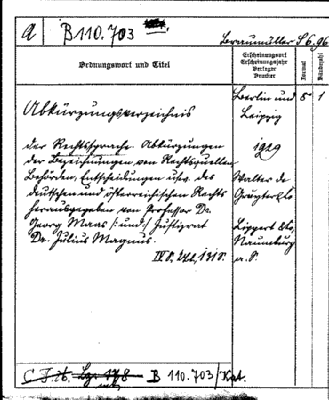 a B 110.703 Braumüller S 6.96
Ordnungswort und Titel
Erscheinungsort
Erscheinungsjahr
Verleger
Drucker
Format
Bändezahl
Abkürzungsverzeichnis
der Rechtssprache. Abkürzungen
der Bezeichnungen von Rechtsquellen,
Behörden, Entscheidungen usw. des
deutschen und österreichischen Rechts
herausgegeben von Professor Dr.
Georg Maas und Justizrat
Dr. Julius Magnus.
IV S.
Berlin und
Leipzig
1929
Walter de
Gruyter & Co
Lippert & Co,
Naumburg
a. S.
8
1
B 110.703/Kat.